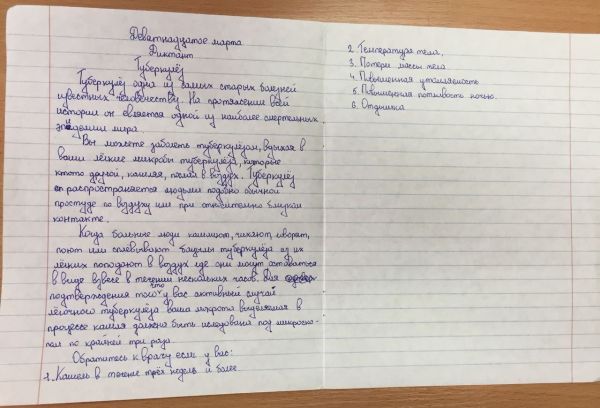 Деватнадцатое марта
Диктант
Туберкулёз
Туберкулёз одна из самых старых болезней
известных человечеству. На протяжении всей
истории он является одной из наиболее смертельных
эпидемии мира.
Вы можете заболеть туберкулёзом, вдыхая в
ваши лёгкие микробы туберкулёза, которые
ктото другой, кашляя, послал в воздух. Туберкулёз
распространяется людьми подобно обычной
простуде по воздуху или при относительно близком
контакте.
Когда больные люди кашляют, чихают, говорят,
поют или сплёвывают бациллы туберкулёза из их
лёгких поподают в воздух где они могут оставаться
в виде взвесе в течении нескольких часов. Для
подтверждения того что у вас активный случай
лёгочного туберкулёза ваша мокрота выделяемая в
процессе кашля должна быть иследована под микроско-
пом по крайней три раза.
Обратитесь к врачу если у вас:
1. Кашель в течение трёх недель и более
2. Температура тела.
3. Потери массы тела
4. Повышенная утомляемость
5. Повышенная потливость ночью.
6. Отдышка